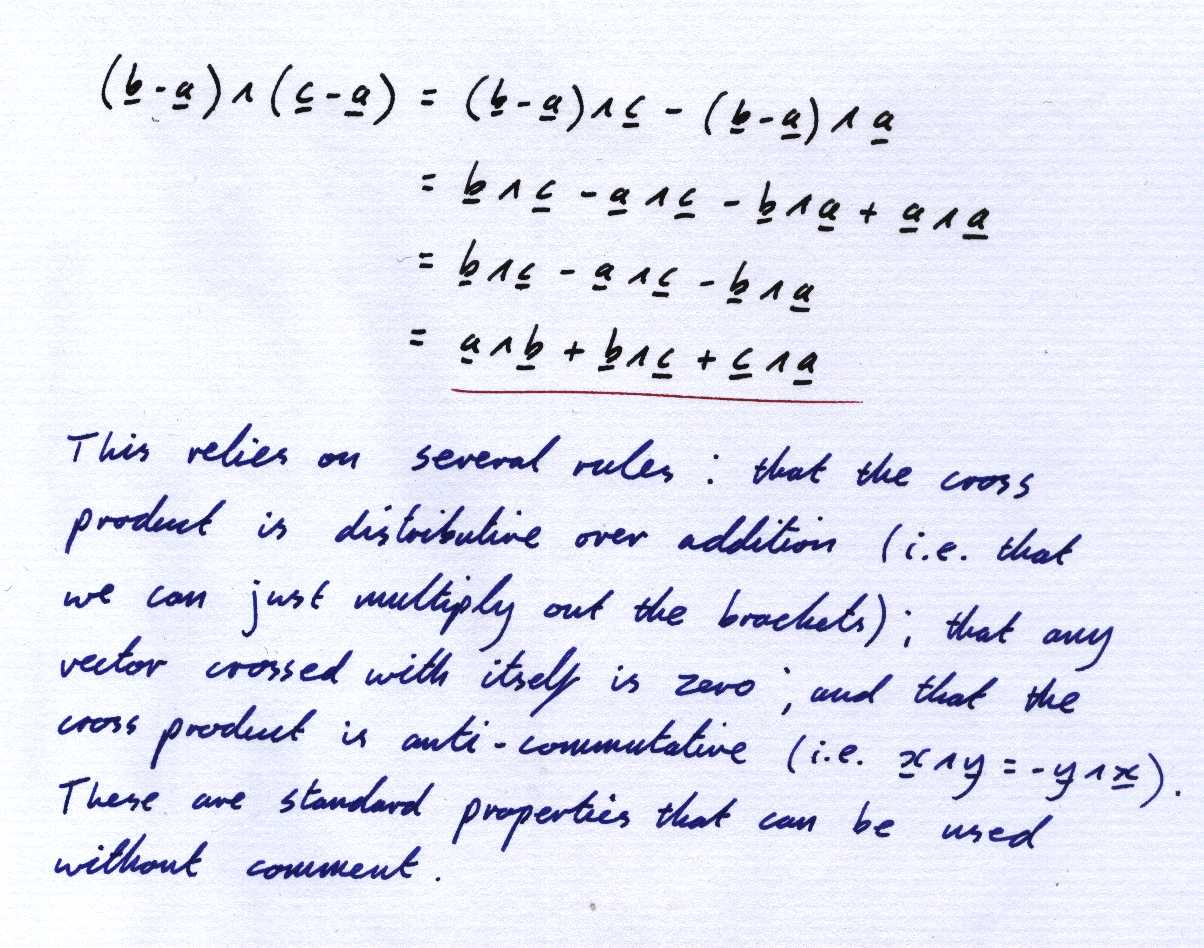 (b-a)∧(c-a) = (b-a)∧c - (b-a)∧a
= b∧c - a∧c - b∧a + a∧a
= b∧c - a∧c - b∧a
= a∧b + b∧c + c∧a
This relies on several rules: that the cross
product is distributive over addition (i.e. that
we can just multiply out the brackets); that any
vector crossed with itself is zero; and that the
cross product is anti-commutative (i.e. x∧y = -y∧x).
These are standard properties that can be used
without comment.